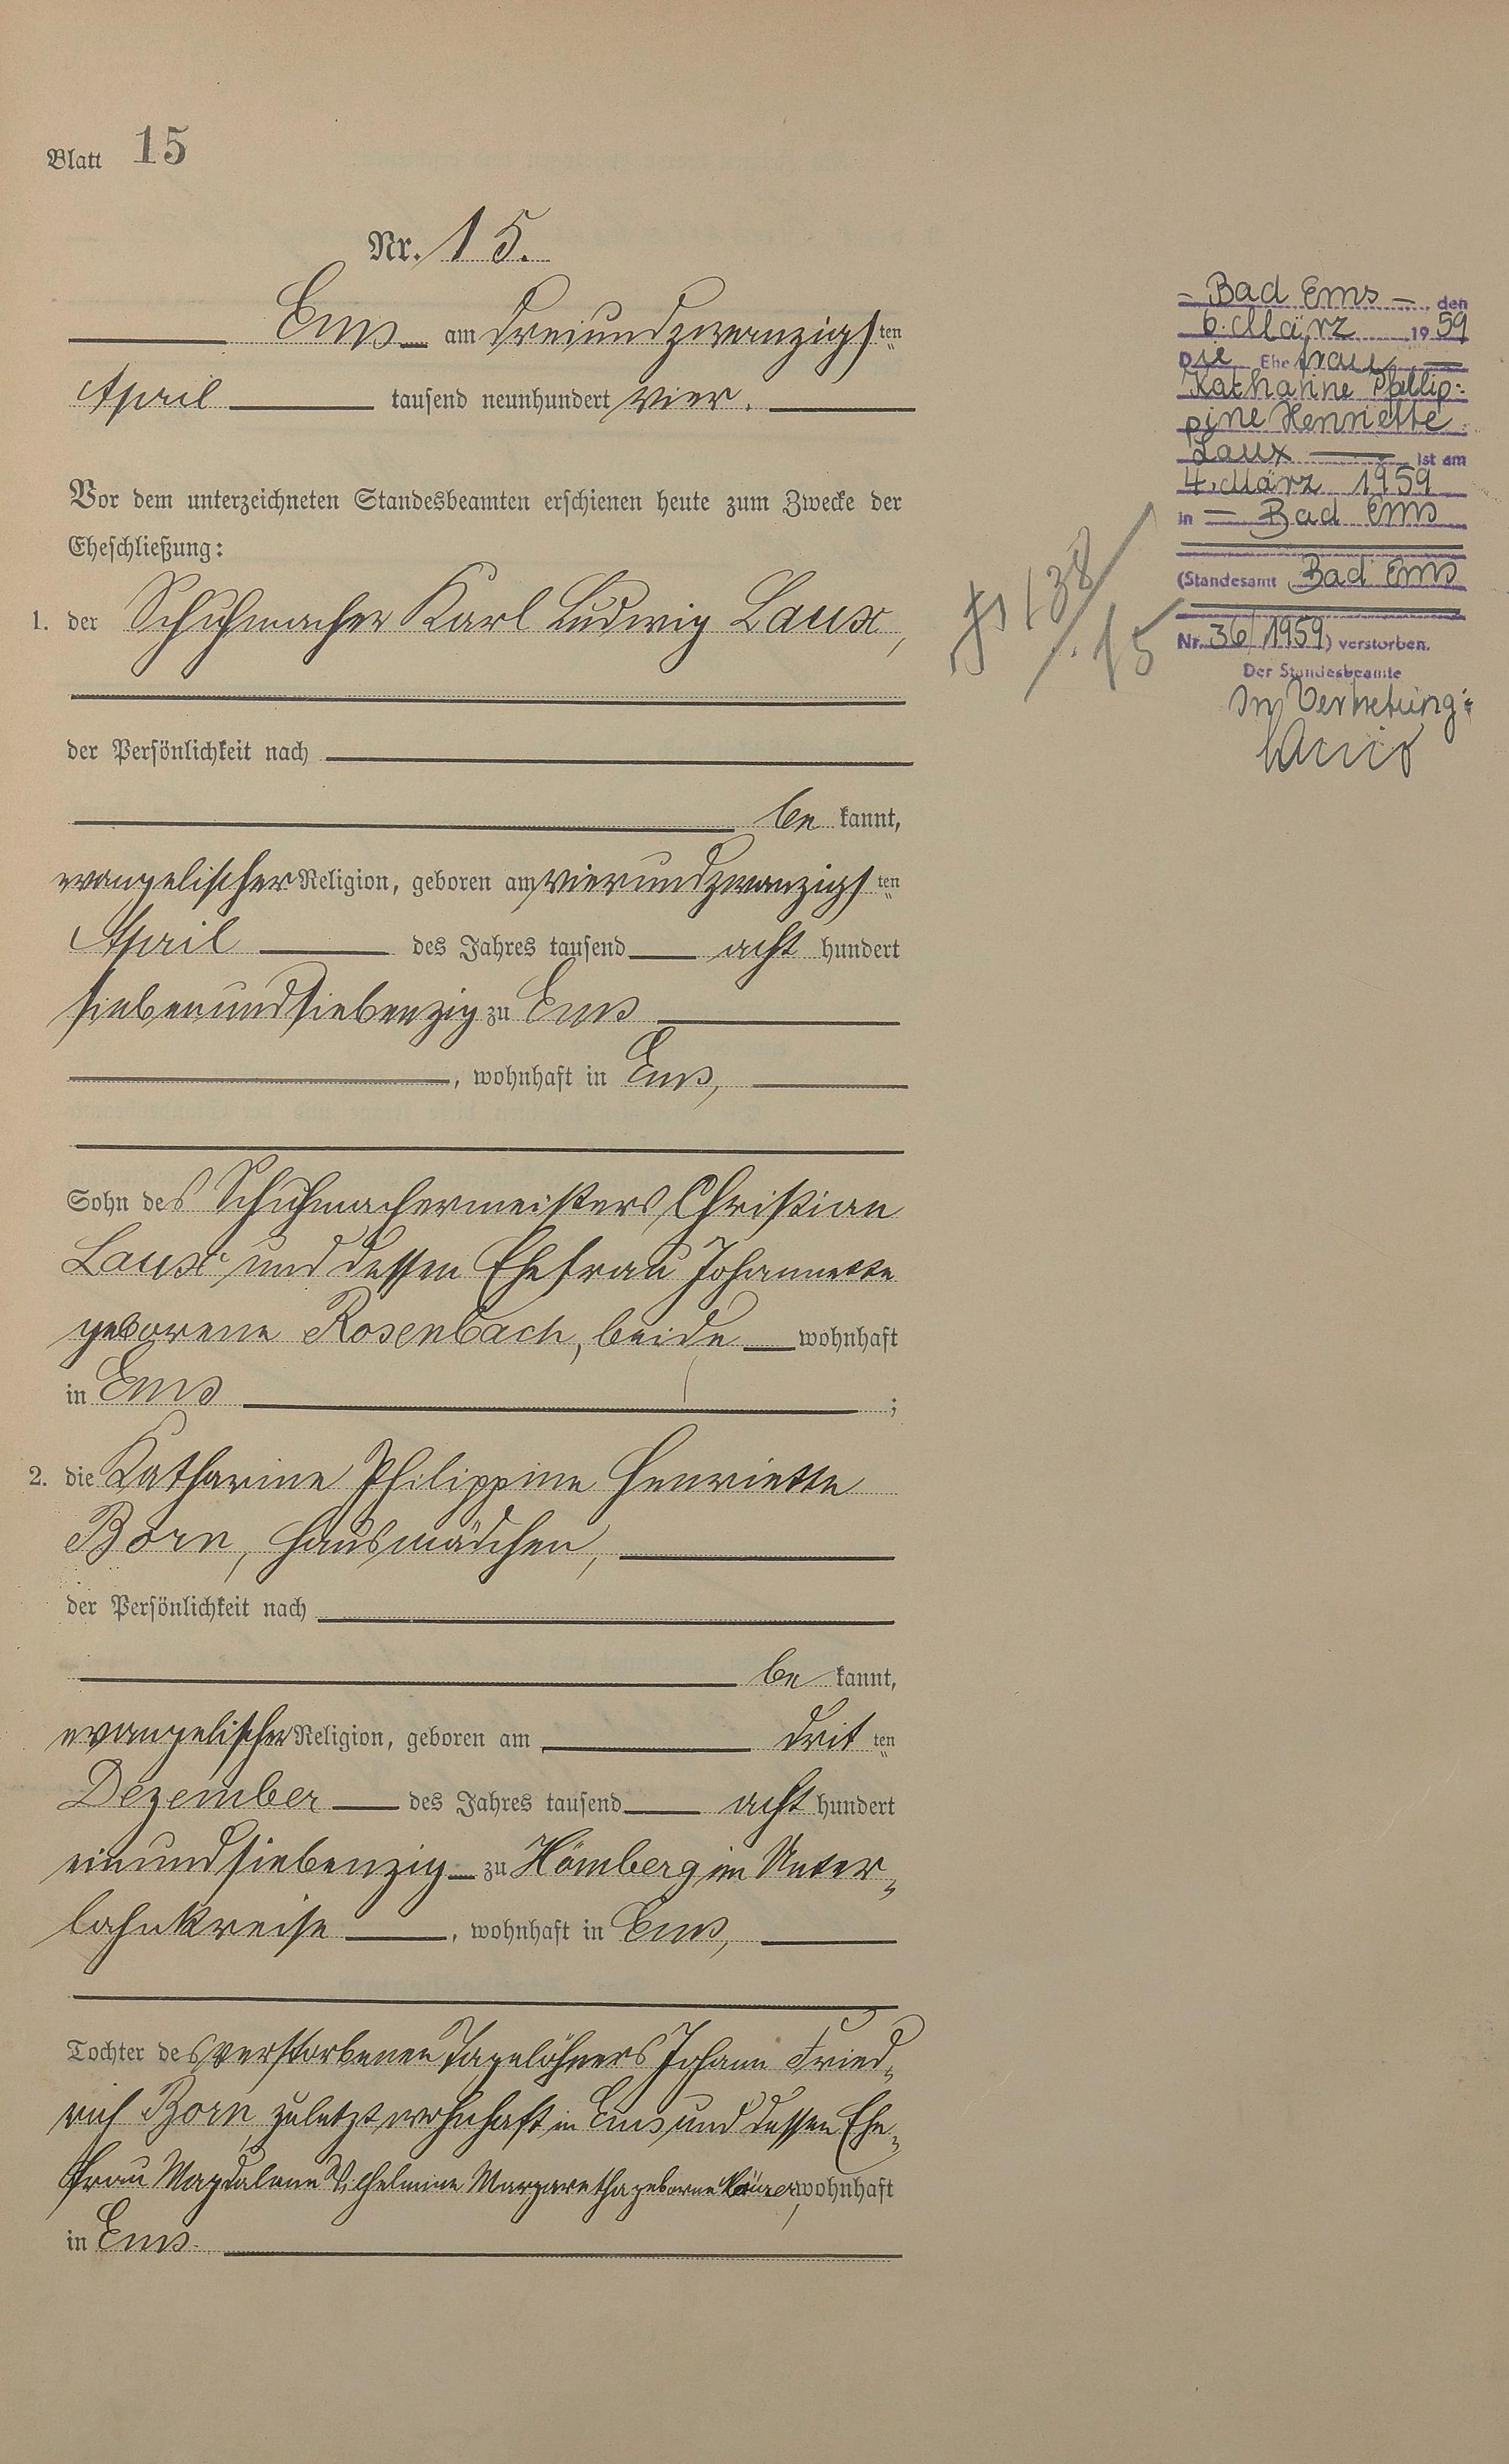 Blatt 15
Nr. 15.
Ems am dreiundzwanzigsten
April tausend neunhundert vier.
Vor dem unterzeichneten Standesbeamten erschienen heute zum Zwecke der
Eheschließung:
1. der Schuhmacher Karl Ludwig Laux,
der Persönlichkeit nach
be kannt,
evangelischer Religion, geboren am vierundzwanzigsten
April des Jahres tausend acht hundert
siebenundsiebenzig zu Ems
, wohnhaft in Ems,
Sohn des Schuhmachermeisters Christian
Laux und dessen Ehefrau Johannette
geborene Rosenbach, beide wohnhaft
in Ems ;
2. die Katharine Philippine Henriette
Born, Hausmädchen,
der Persönlichkeit nach
be kannt,
evangelischer Religion, geboren am dritten
Dezember des Jahres tausend acht hundert
einundsiebenzig zu Hömberg im Unter-
lahnkreise , wohnhaft in Ems,
Tochter des verstorbenen Tagelöhners Johann Fried-
rich Born, zuletzt wohnhaft in Ems und dessen Ehe-
frau Magdalene Wilhelmine Margaretha geborne wohnhaft
in Ems.
- Bad Ems - , den
6. März 1959
Die Ehefrau
Katharine Phllip-
pine Henriette
Laux ist am
4. März 1959
in - Bad Ems
(Standesamt Bad Ems
Nr. 36/1959) verstorben.
Der Standesbeamte
In Vertretung:
138
15